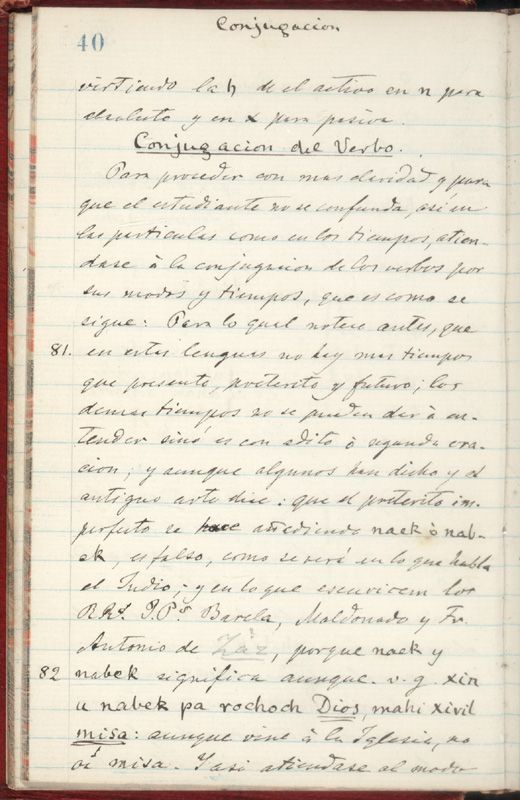 Conjugacion
40
virtiendo la h de el activo en n para
absoluto y en x para pasiva.
Conjugacion del Verbo.
Para proceder con mas claridad y para
que el estudiante no se confunda, así en
las particulas como en los tiempos, atien-
dase à la conjugacion de los verbos por
sus modos y tiempos, que es como se
sigue: Para lo qual notese antes, que
81. en estas lenguas no hay mas tiempos
que presente, preterito y futuro; los
demas tiempos no se pueden dar à en-
tender sinó es con adito ò segunda ora-
cion; y aunque algunos han dicho y el
antiguo arte dice: que el preterito im-
perfecto se hace añediendo naek ò nab-
ek, es falso, como se verá en lo que habla
el Indio; y en lo que escrivieron los
RRs. P.Ps. Barela, Maldonado y Fr.
Antonio de Zàz, porque naek y
82 nabek significa aunque. v. g. xin
u nabek pa rochoch Dios, mahi xivil
misa: aunque vine à la Iglesia, no
oí misa. Y asi atiendase al modo